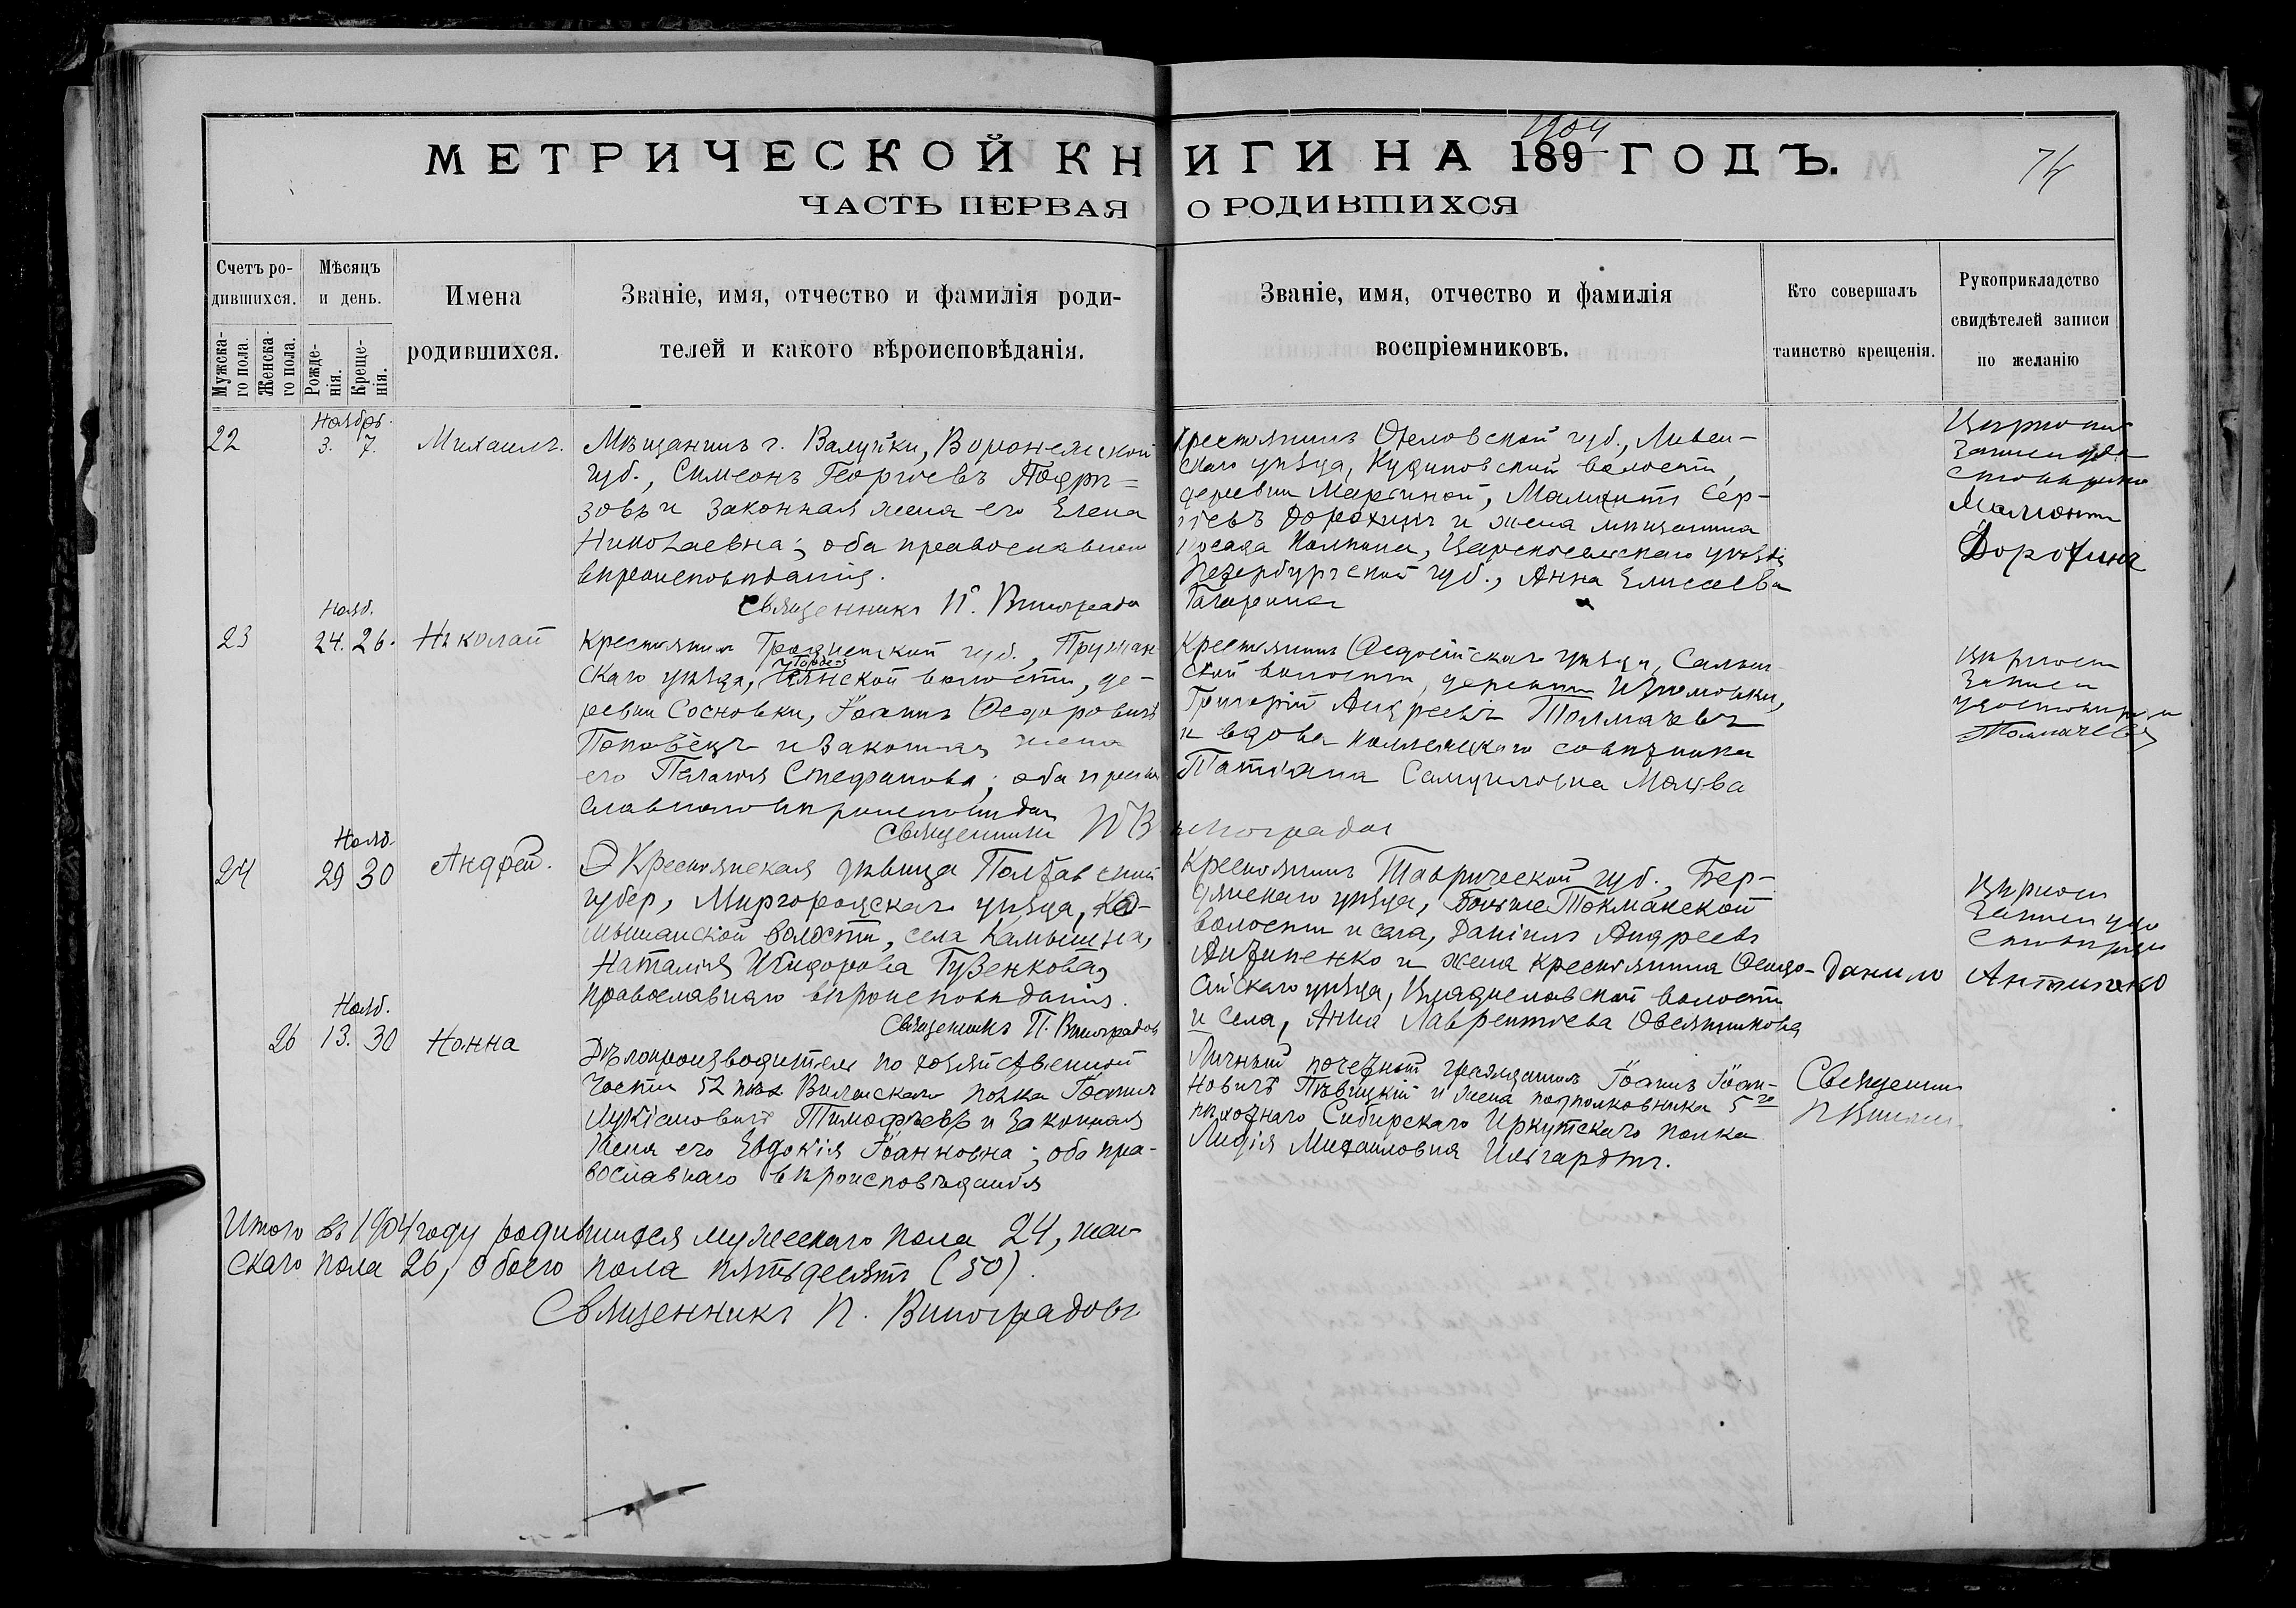 МЕТРИЧЕСКОЙ КНИГИ НА 189 ГОДЪ.
1904
74
ЧАСТЬ ПЕРВАЯ О РОДИВШИХСЯ
Счетъ ро-
дившихся.
Мужска-
го пола.
Женска-
го пола.
Мѣсяцъ
и день.
Рожде-
нія.
Креще-
нія.
Имена
родившихся.
Званіе, имя, отчество и фамилія роди-
телей и какого вѣроисповѣданія.
Званіе, имя, отчество и фамилія
воспріемниковъ.
Кто совершалъ
таинство крещенія.
Рукоприкладство
свидѣтелей записи
по желанію
Ноябрь.
22 3. 7. Михаилъ.
Мѣщанинъ г. Валуйки, Воронежской
губ., Симеонъ Георгіевъ Подри=
зовъ и законная жена его Елена
Николаевна; оба православнаго
вѣроисповѣданія.
Священникъ П. Виноградо
Крестьянинъ Орловской губ., Ливен-
скаго уѣзда, Кудиновской волости,
деревни Маргиной, Мамонтъ Сер-
гіевъ Дорохинъ и жена мѣщанина
посада Колпина, Царскосельскаго уѣзда
Петербургской губ., Анна Елисеева
Гагарина
Вѣрность
записи удо
стовѣряю
Мамонтъ
Дорохинъ
Нояб.
23 24. 26. Николай
Крестьянинъ Гродненской губ., Пружан
скаго уѣзда, волости, де-
ревни Сосновки, Іоаннъ Ѳедоровичъ
Поповецъ и законная жена
его Пелагія Стефанова; оба право
славнаго вѣроисповѣдан
Священникъ П Виноградов
Крестьянинъ Ѳеодосійскаго уѣзда, Салын
ской волости, деревни Изюмовки,
Григорій Андреевъ Толмачевъ
и вдова коллежскаго совѣтника
Татіана Самуиловна Мацва
вѣрность
записи
удостовѣряю
Толмачевъ
Нояб.
24 29 30 Андрей.
Крестьянская дѣвица Полтавской
губер, Миргородскаго уѣзда, Ка-
мышанской волости, села Камышна,
Наталія Исидорова Гузенкова,
православнаго вѣроисповѣданія.
Священникъ П. Виноградовъ
Крестьянинъ Таврической губ., Бер-
дянскаго уѣзда, Больше Токмакской
волости и села, Даніилъ Андреевъ
Антипенко и жена крестьянина Ѳеодо-
сійскаго уѣзда, Владиславской волости
и села, Анна Лаврентіева Овсянникова
вѣрность
записи удо
стовѣряю
Данило Антипенко
Нояб.
26 13. 30 Нонна
Дѣлопроизводитель по хозяйственной
части 52 пѣх Виленскаго полка Іоаннъ
Лукіановичъ Тимофѣевъ и законная
жена его Евдокія Іоанновна; оба пра-
вославнаго вѣроисповѣданія
Личный почетный гражданинъ Іоаннъ Іоан-
новичъ Пѣвицкій и жена подполковника 5го
пѣхотнаго Сибирскаго Иркутскаго полка
Лидія Михаиловна Ильгардтъ.
Священни
П Виног
Итого въ 1904 году родившихся мужескаго пола 24, жен-
скаго пола 26, обоего пола пятьдесятъ (50).
Священникъ П. Виноградовъ